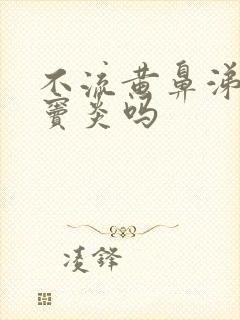 不流黄鼻涕
窦炎吗
凌铎